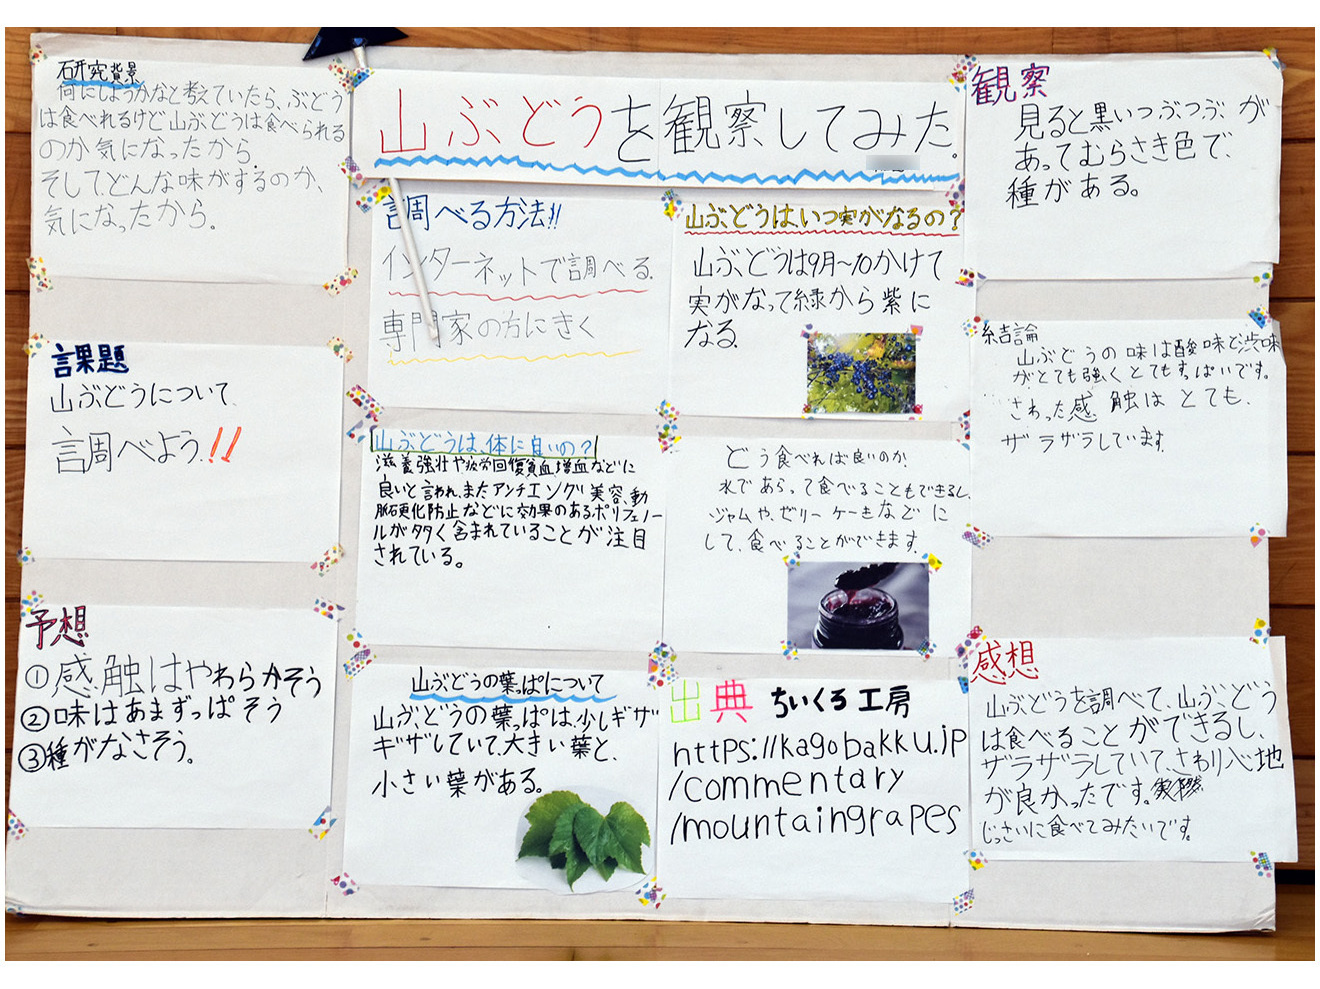 山ぶどうを観察してみた。
研究背景
何にしようかなと考えていたら、ぶどう
は食べれるけど山ぶどうは食べられる
のか気になったから。
そして、どんな味がするのか、
気になったから。
課題
山ぶどうについて
調べよう!!
予想
①感触はやわらかそう
②味はあまずっぱそう
③種がなさそう。
調べる方法!!
インターネットで調べる
専門家の方にきく
山ぶどうは、体に良いの?
滋養強壮や疲労回復貧血、増血などに
良いと言われ、またアンチエングリ美容、動
脈硬化防止などに効果のあるポリフェノー
ルが多く含まれていることが注目
されている。
山ぶどうの葉っぱについて
山ぶどうの葉っぱは、少しギザ
ギザしていて、大きい葉と、
小さい葉がある。
山ぶどうは、いつ実がなるの?
山ぶどうは9月～10かけて
実がなって緑から紫に
なる
どう食べれば良いのか、
水であらって食べることもできるし、
ジャムや、ゼリー ケーキなどに
して、食べることができます。
出典 ちいくろ工房
https://kagobakku.jp
/commentary
/mountaingrapes
観察
見ると黒いつぶつぶが
あってむらさき色で、
種がある。
結論
山ぶどうの味は酸味と渋味
がとても強くとてもすっぱいです。
さわった感触はとても、
ザラザラしています。
感想
山ぶどうを調べて、山ぶどう
は食べることができるし、
ザラザラしていて、さわり心地
が良かったです。
じっさいに食べてみたいです。